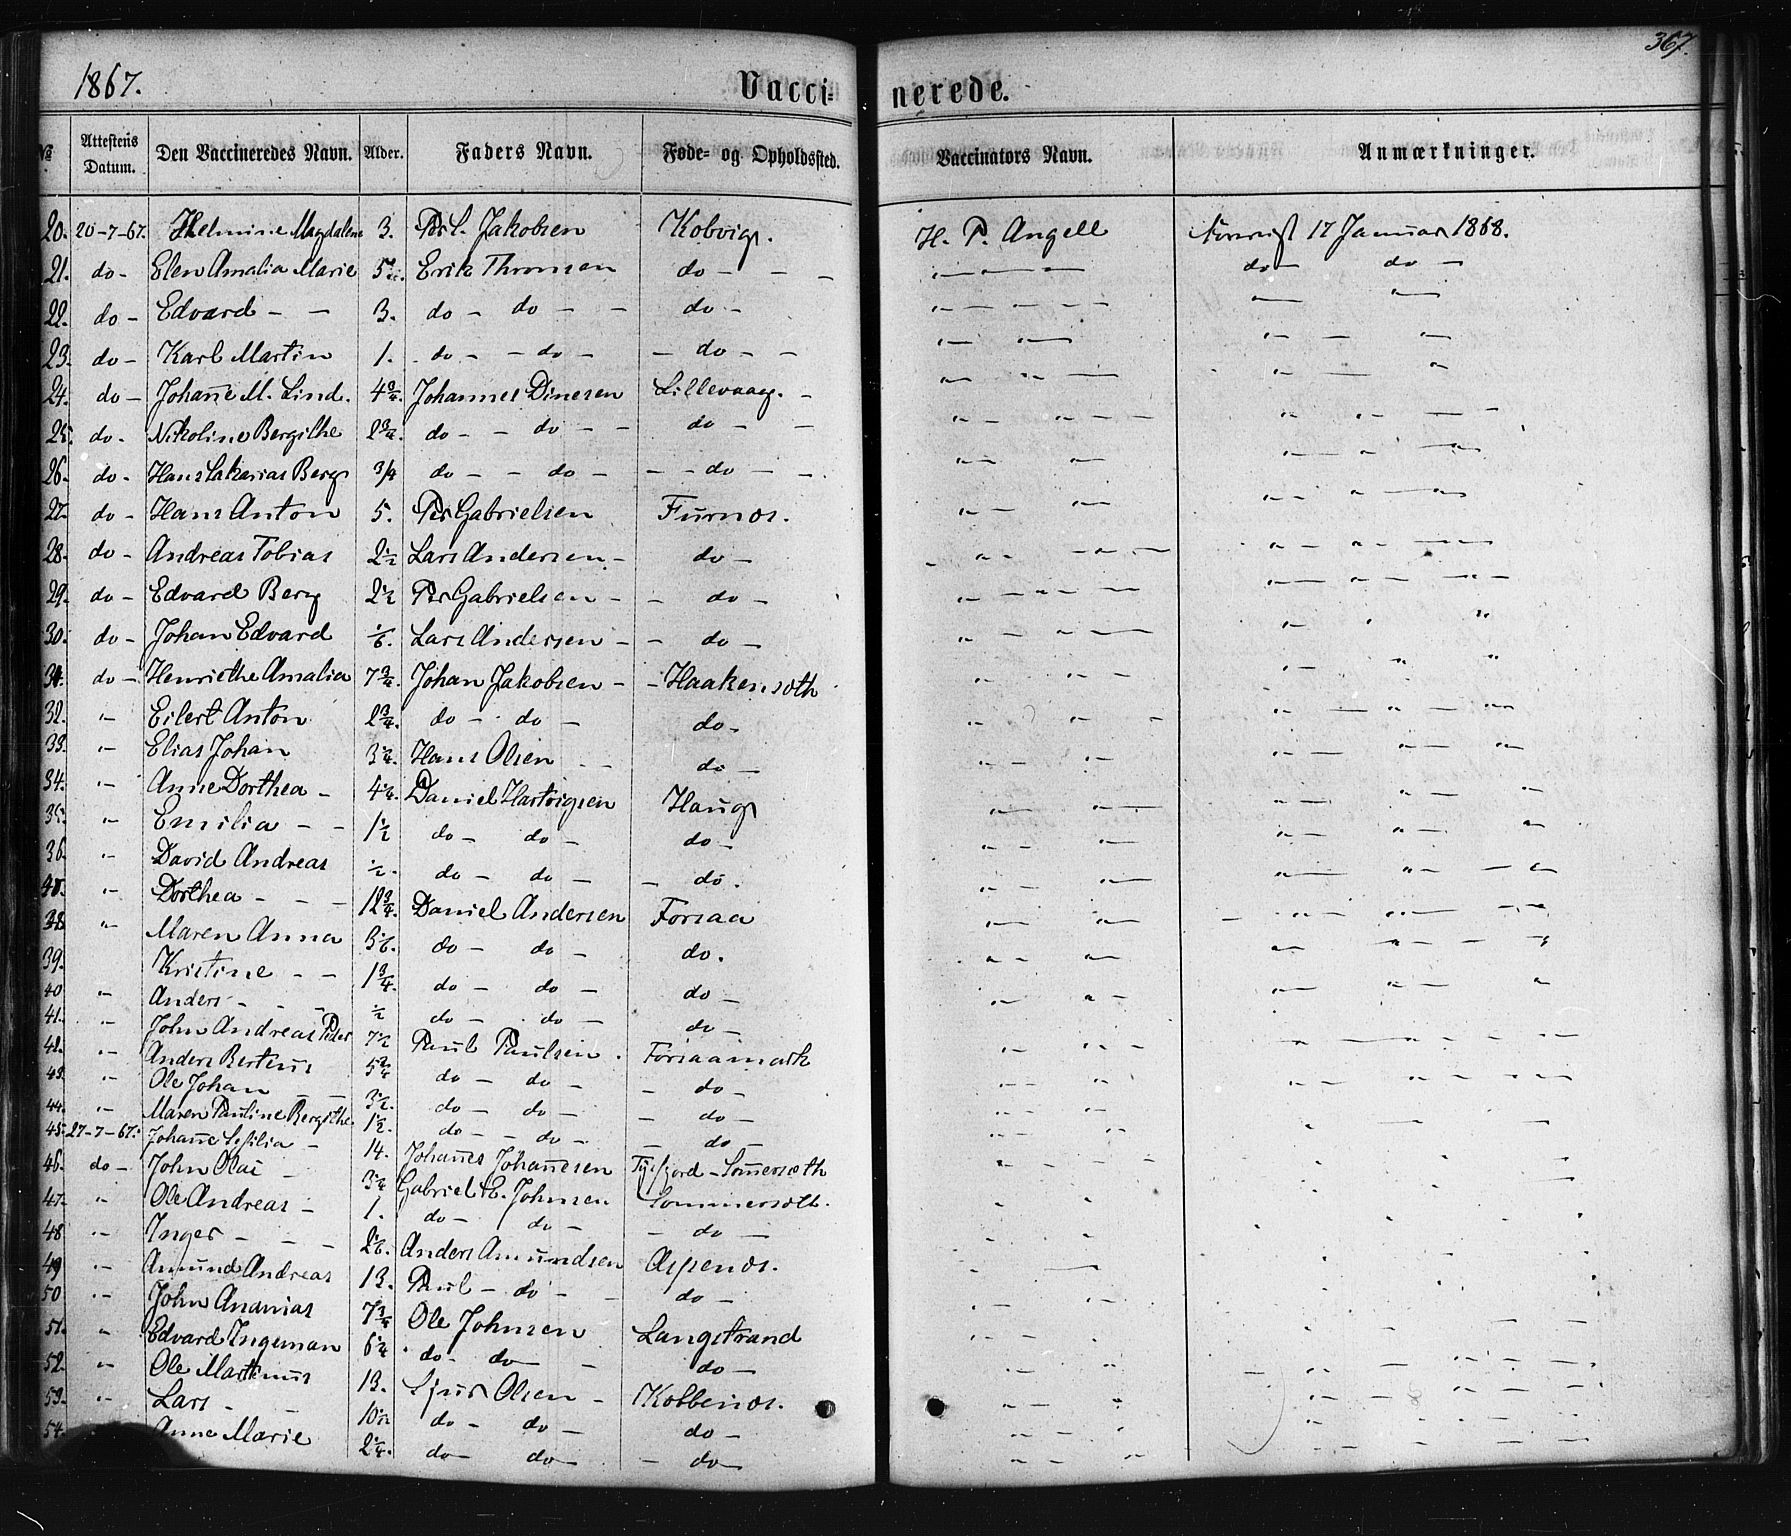 367.
1867. Vacci- nerede.
No Attestens Datum. Den Vaccineredes Navn. Alder. Faders Navn. Føde- og Opholdssted. Vaccinators Navn. Anmærkninger.
20. 20-7-67. Helmine Magdalene 3. Jakobsen Kobvig. H. P. Angell 17 Januar 1868.
21. do- Elen Amalia Marie Erik Thomsen do - - - do - do -
22. do- Edvard - - 3. do - do - - do -
23. do- Karl Martin 1. do - - do - - do - -
24. do- Johanne M. Lind. 4 3/4. Johannes Dinesen Lillevaag. -
25. do- Nikoline Bergithe 2 3/4. do - - do - - do - -
26. do- Hans Sakarias Berg 3/4 do - - do - - - do - -
27. do- Hans Anton 5. Per Gabrielsen Furnæs.
28. do- Andreas Tobias 2 1/2 Lars Andersen - do -
29. do- Edvard Berg 2 1/2 Per Gabrielsen - - do -
30. do- Johan Edvard 1/6. Lars Andersen - - do -
31. do- Henriethe Amalia 7 3/4. Johan Jakobsen - - Haakensæth
32. " Eilert Anton 2 3/4. do - do - do -
33. " Elias Johan Hans Olsen - - do -
34. " Anne Dorthea - Daniel Hartvigsen Haug
35. " Emilia - - 1 1/2 do - do - do -
36. " David Andreas 1/2. do - do - - do.
" Dorthea - - - 12 3/4. Daniel Andersen Forsaa
38. " Maren Anna do - do - do.
39. Kristine - - 1 3/4. do - do - do -
40 " Anders - - - 1/2 do - do - do -
41. " John Andreas Peder 7 1/2 Paul Paulsen. Forsaamark
42. " Anders Bertinus do - do - - do -
43. " Ole Johan - - 3 1/2. do - do - - do -
44. " Maren Pauline Bergithe 1 1/2. do - - do - - do -
45. 27-7-67. Johanne Sesilia - 14. Johannes Johannesen Tysfjord - Sommersæth
46. do - John Olai - Gabriel E. Johnsen Sommersæth.
47. " Ole Andreas - 1. do - do - - do -
48 " Inger - - - Anders Amundsen Aspenæs.
49 " Amund Andreas 13. Paul - do - - do -
50 " John Ananias 7 3/4 Ole Johnsen Langstrand
51. " Edvard Ingeman 6 1/4 do - do - - do -
52. " Ole Martinus 13. Sjur Olsen - Kobbenæs.
53. " Lars - - do - do - do -
54. Anne Marie 2 1/4. do - do - - do -